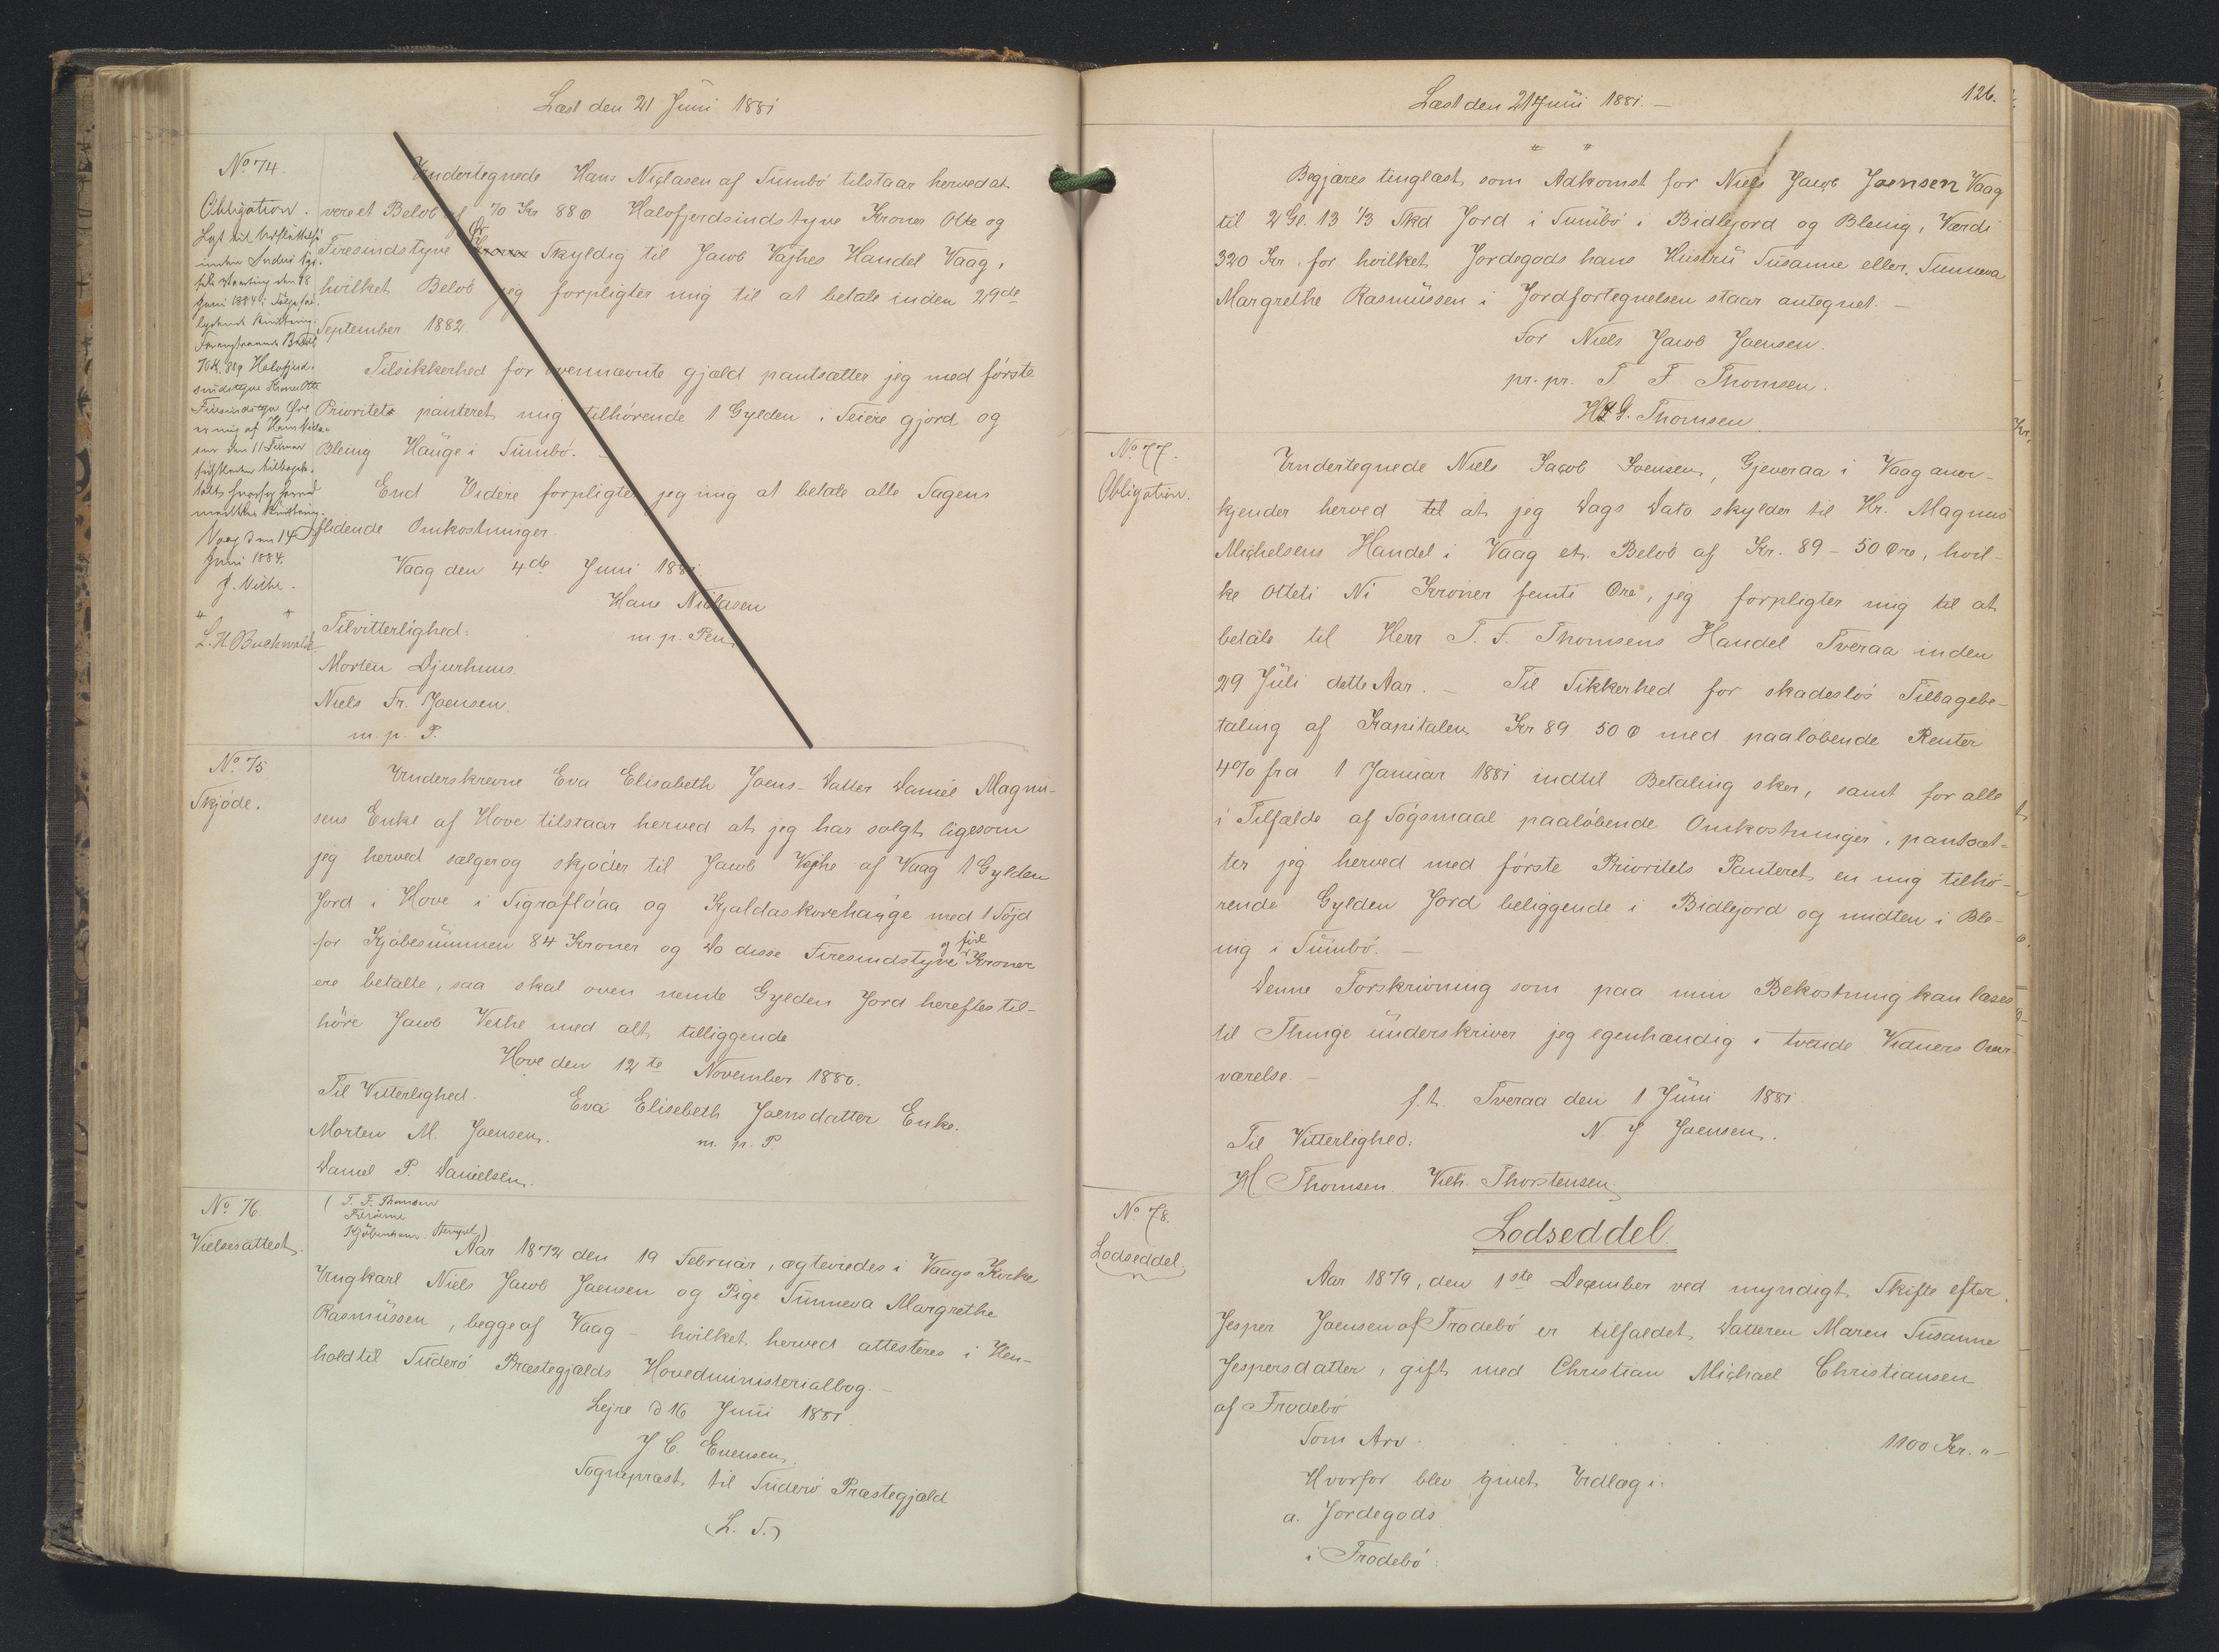 Læst den 21 Juni 1881
No 74.
Obligation.
Lyst til Udslettelse
under Suderø
ting den 18
Juni 1884 i Følge
lydende Kvittering:
Foranstaaende Beløb
70 K. 88 ø Halvfjerd-
sindstyve Kroner Otte
Firesindstyve Øre
er mig af Hans Nicla-
sen den 11 Februar
tilbagebe-
talt hvorfor herved
meddeles Kvittering.
Vaag den 14
Juni 1884.
J. Vethe.
" "
L. H. Buchwaldt
Undertegnede Hans Niclasen af Sumbö tilstaar herved at
vere et Beløb af 70 Kr 88 Ø Halvfjerdsindstyve Kroner Otte og
Firesindstyve Kroner Ør Skyldig til Jacob Vajhes Handel Vaag,
hvilket Beløb jeg forpligter mig til at betale inden 29de
September 1882.
Tilsikkerhed for ovennævnte gjæld pantsætter jeg med første
Prioritets panteret mig tilhörende 1 Gylden i Seiere gjord og
Blenig Hauge i Sumbö.
End Videre forpligter jeg mig at betale alle Sagens
flidende Omkostninger.
Vaag den 4de Juni 1881.
Hans Niclasen
m. p. Pen
Tilvitterlighed:
Morten Djurhuus
Niels Fr. Joensen.
m. p. P.
No 75
Skjöde.
Underskrevne Eva Elisabeth Joens-Datter Daniel Magnu-
sens Enke af Hove tilstaar herved at jeg har solgt ligesom
jeg herved sælger og skjøder til Jacob Vejhe af Vaag 1 Gylden
Jord i Hove i Sigraflöaa og Kjaldaskorehauge med 1 Töjd
for Kjøbesummen 84 Kroner og Da disse Firesindstyve og fire Kroner
ere betalte, saa skal oven nemte Gylden Jord herefter til-
höre Jacob Vethe med alt tilliggende
Hove den 12te November 1880.
Til Vitterlighed.
Eva Elisebeth Joensdatter Enke.
Morten M. Joensen.
m. p. P.
Daniel P. Danielsen.
No 76.
Vielsesattest.
( T. F. Thomsen
Færøerne
Kjöbenhavn. Stempel)
Aar 1872 den 19 Februar, ægteviedes i Vaags Kirke
Ungkarl Niels Jacob Joensen og Pige Sunneva Margrethe
Rasmüssen, begge af Vaag – hvilket herved attesteres i Hen-
hold til Suderö Præstegjælds Hovedministerialbog.–
d 16 Juni 1881.
J C. Evensen,
Sognepræst til Suderö Præstegjæld
(L. S.)
Læst den 21 Juni 1881.–
126.
" "
Begjæres tinglæst som Adkomst for Niels Jacob Joensen Vaag
til 2 Gl. 13 1/3 Skd Jord i Sumbö i Bidlejord og Blenig, Værdi
320 Kr. for hvilket Jordegods hans Hustru Susanne eller Sunneva
Margrethe Rasmüssen i Jordfortegnelsen staar antegnet.–
For Niels Jacob Joensen.
pr. pr. T F. Thomsen.
G. Thomsen.
No 77.
Obligation.
Undertegnede Niels Jacob Joensen, Gjeveraa i Vaag aner-
kjender herved til at jeg Dags Dato skylder til Hr. Magnus
Michelsens Handel i Vaag et Beløb af Kr. 89 – 50 Øre, hvil-
ke Otteti Ni Kroner femti Øre, jeg forpligter mig til at
betale til Herr T. F. Thomsens Handel Tveraa inden
29 Juli dette Aar. – Til Sikkerhed for skadeslös Tilbagebe-
taling af Kapitalen Kr 89 50 Ø med paaløbende Renter
4% fra 1 Januar 1881 indtil Betaling sker, samt for alle
i Tilfælde af Søgsmaal paaløbende Omkostninger, pantsæt-
ter jeg herved med förste Prioritets Panteret en mig tilhö-
rende Gylden Jord beliggende i Bidlejord og midten i Ble-
nig i Sumbö.–
Denne Forskrivning som paa min Bekostning kan læses
til Thinge underskriver jeg egenhændig i tvende Vidners Over-
værelse.–
f. t. Tveraa den 1 Juni 1881.
Til Vitterlighed:
N J Joensen.
H. Thomsen. Vilh. Thorstensen.
No 78.
Lodseddel.
Lodseddel.
Aar 1879, den 1ste December ved myndigt Skifte efter
Jesper Joensen af Frodebö er tilfaldet Datteren Maren Susanne
Jespersdatter, gift med Christian Michael Christiansen
af Frodebö
Som Arv . . . . . . 1100 Kr. "–
Hvorfor blev givet Udlæg i:
a. Jordegods
i Frodebö: